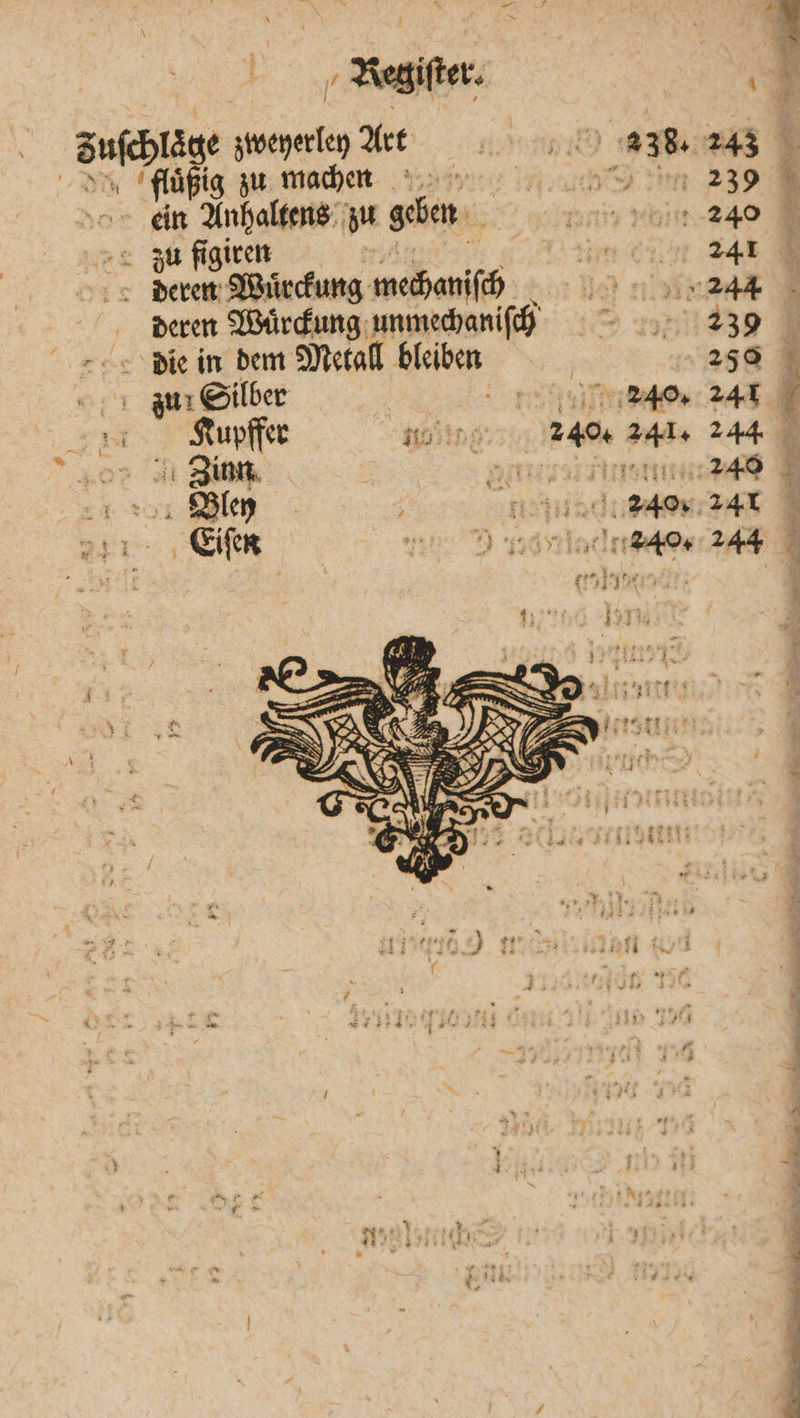 Regiſter.
Zuſchlaͤge zweyerley Art 238. 243
fluͤßig zu machen 239
ein Anhaltens zu geben 240
zu figiren 241
deren Wuͤrckung mechaniſch 244
deren Wuͤrckung unmechaniſch 239
die in dem Metall bleiben 250
zu Silber 240. 241
Kupffer 240. 241. 244
Zinn 240
Bley 240. 241
Eiſen 240. 244